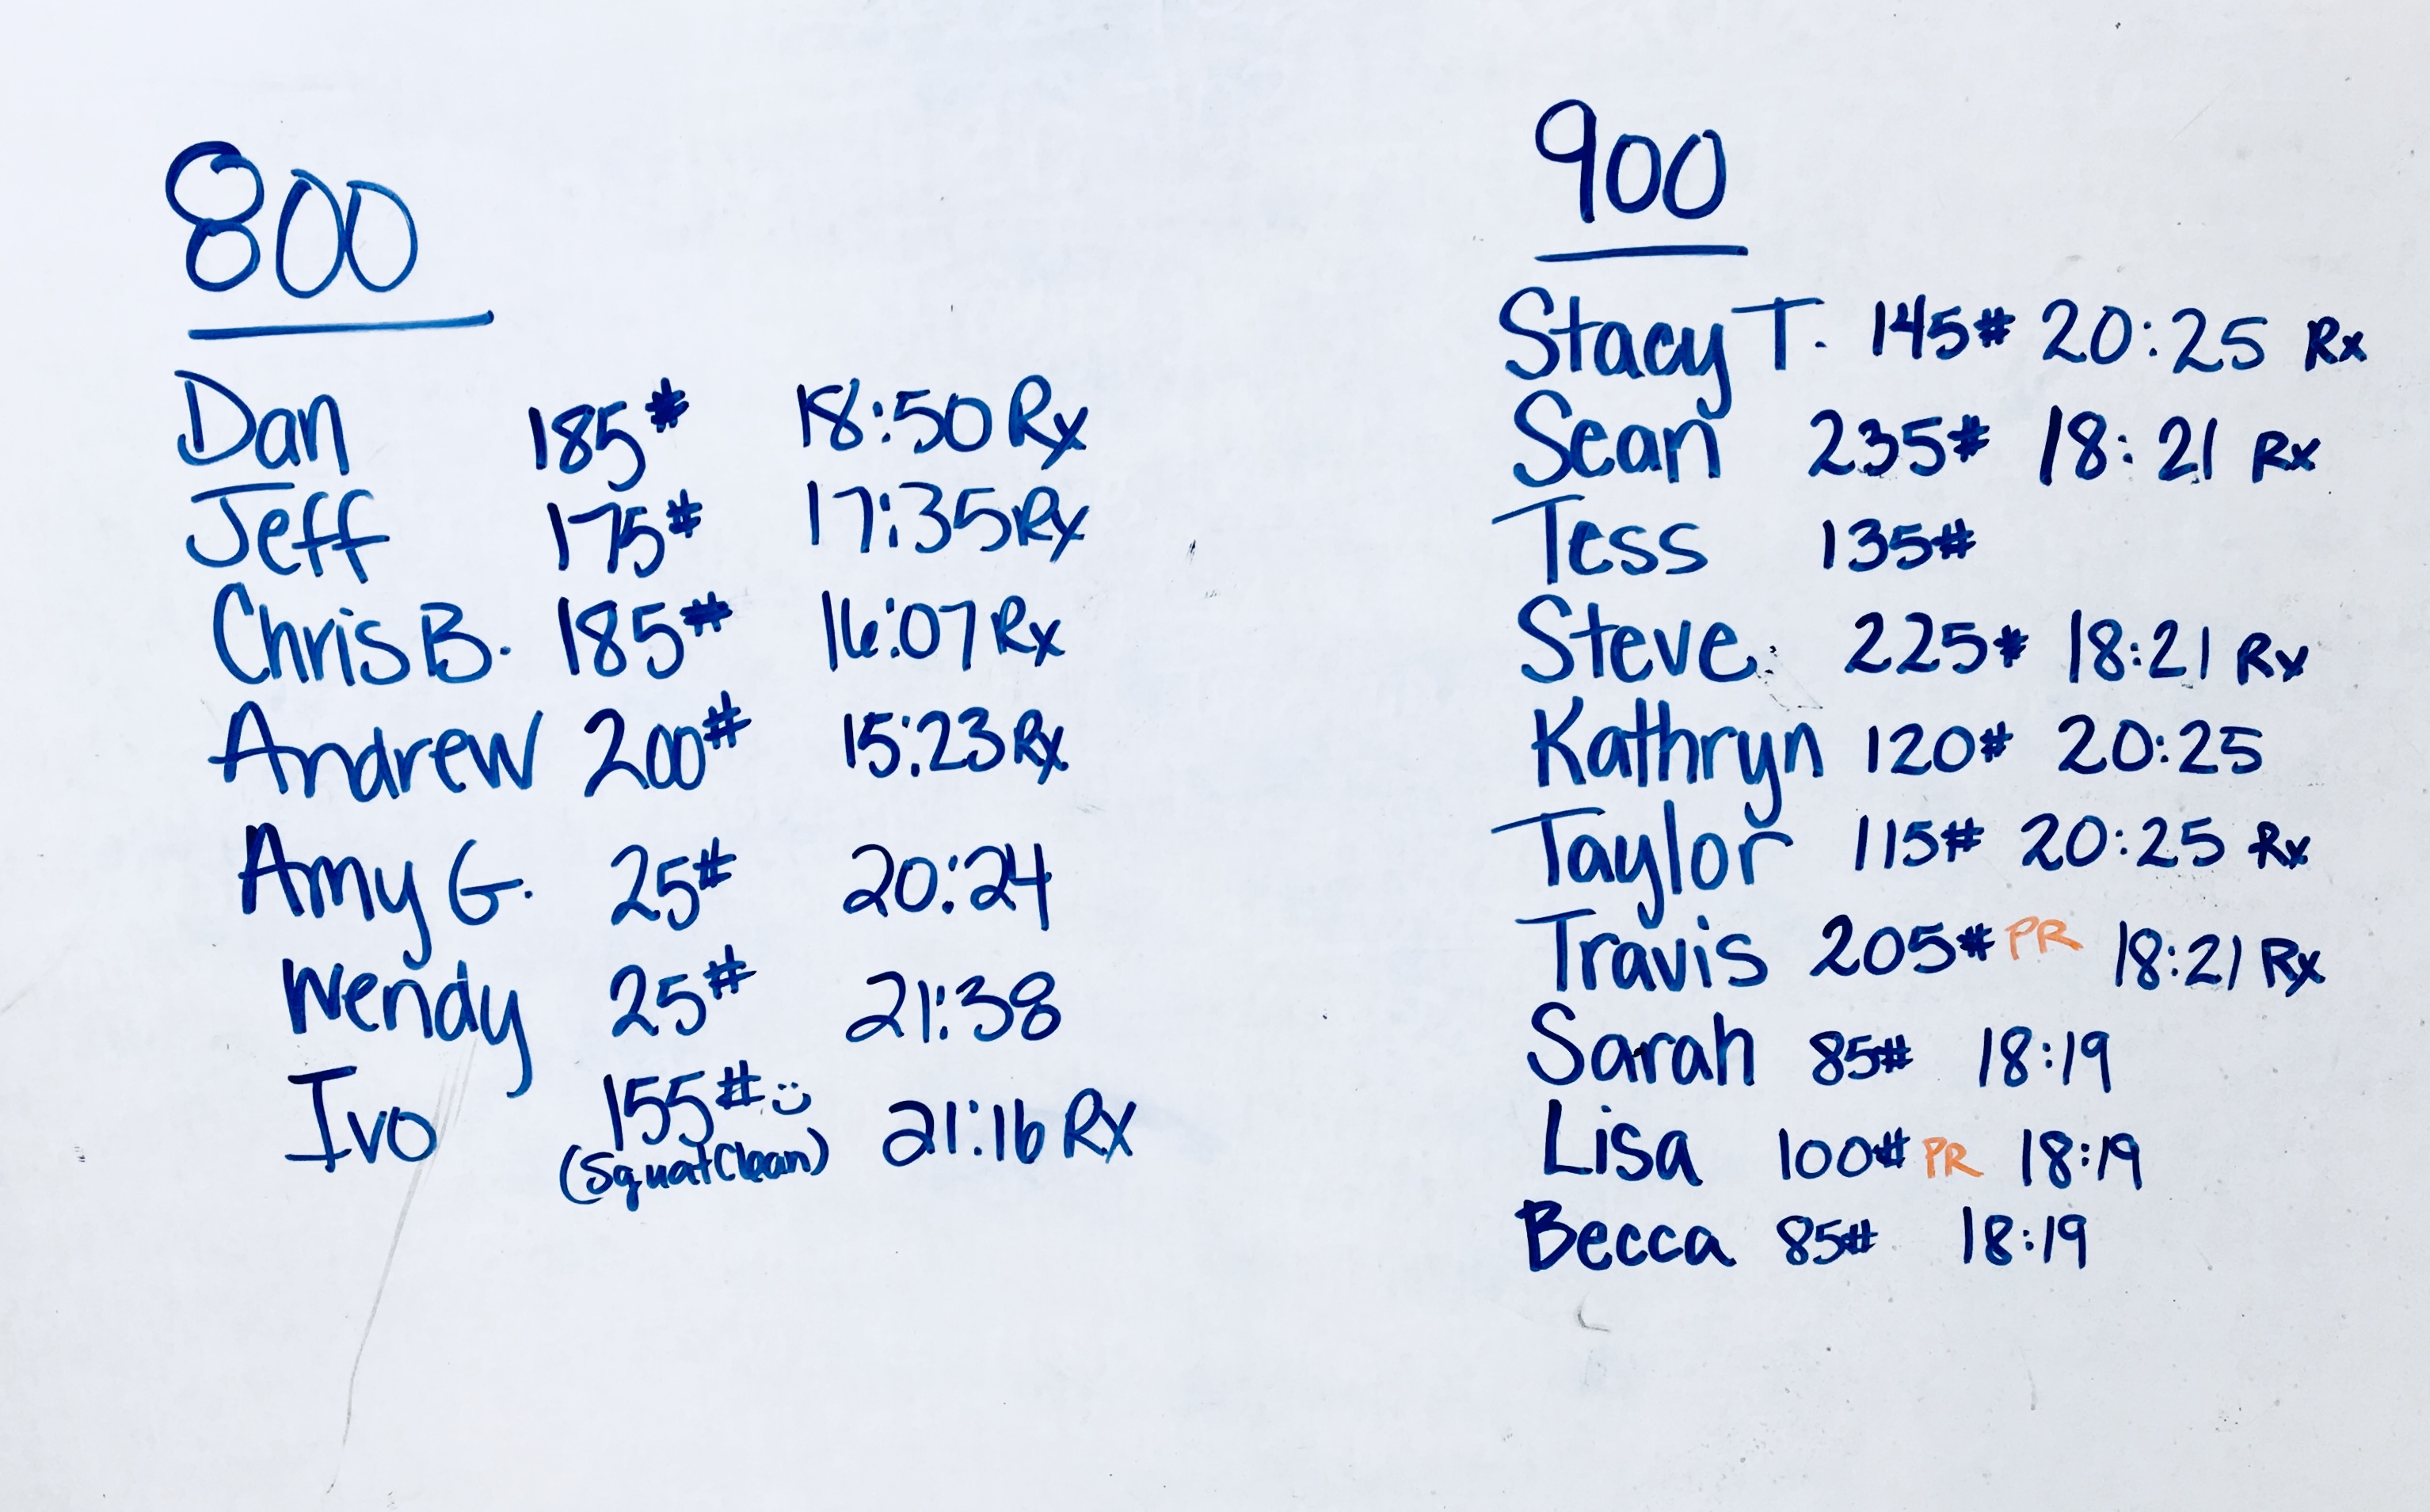 800
Dan 185# 18:50 Rx
Jeff 175# 17:35 Rx
Chris B. 185# 16:07 Rx
Andrew 200# 15:23 Rx
Amy G. 25# 20:24
Wendy 25# 21:38
Ivo 155# :) 21:16 Rx
(Squat Clean)
900
Stacy T. 145# 20:25 Rx
Sean 235# 18:21 Rx
Tess 135#
Steve 225# 18:21 Rx
Kathryn 120# 20:25
Taylor 115# 20:25 Rx
Travis 205# PR 18:21 Rx
Sarah 85# 18:19
Lisa 100# PR 18:19
Becca 85# 18:19